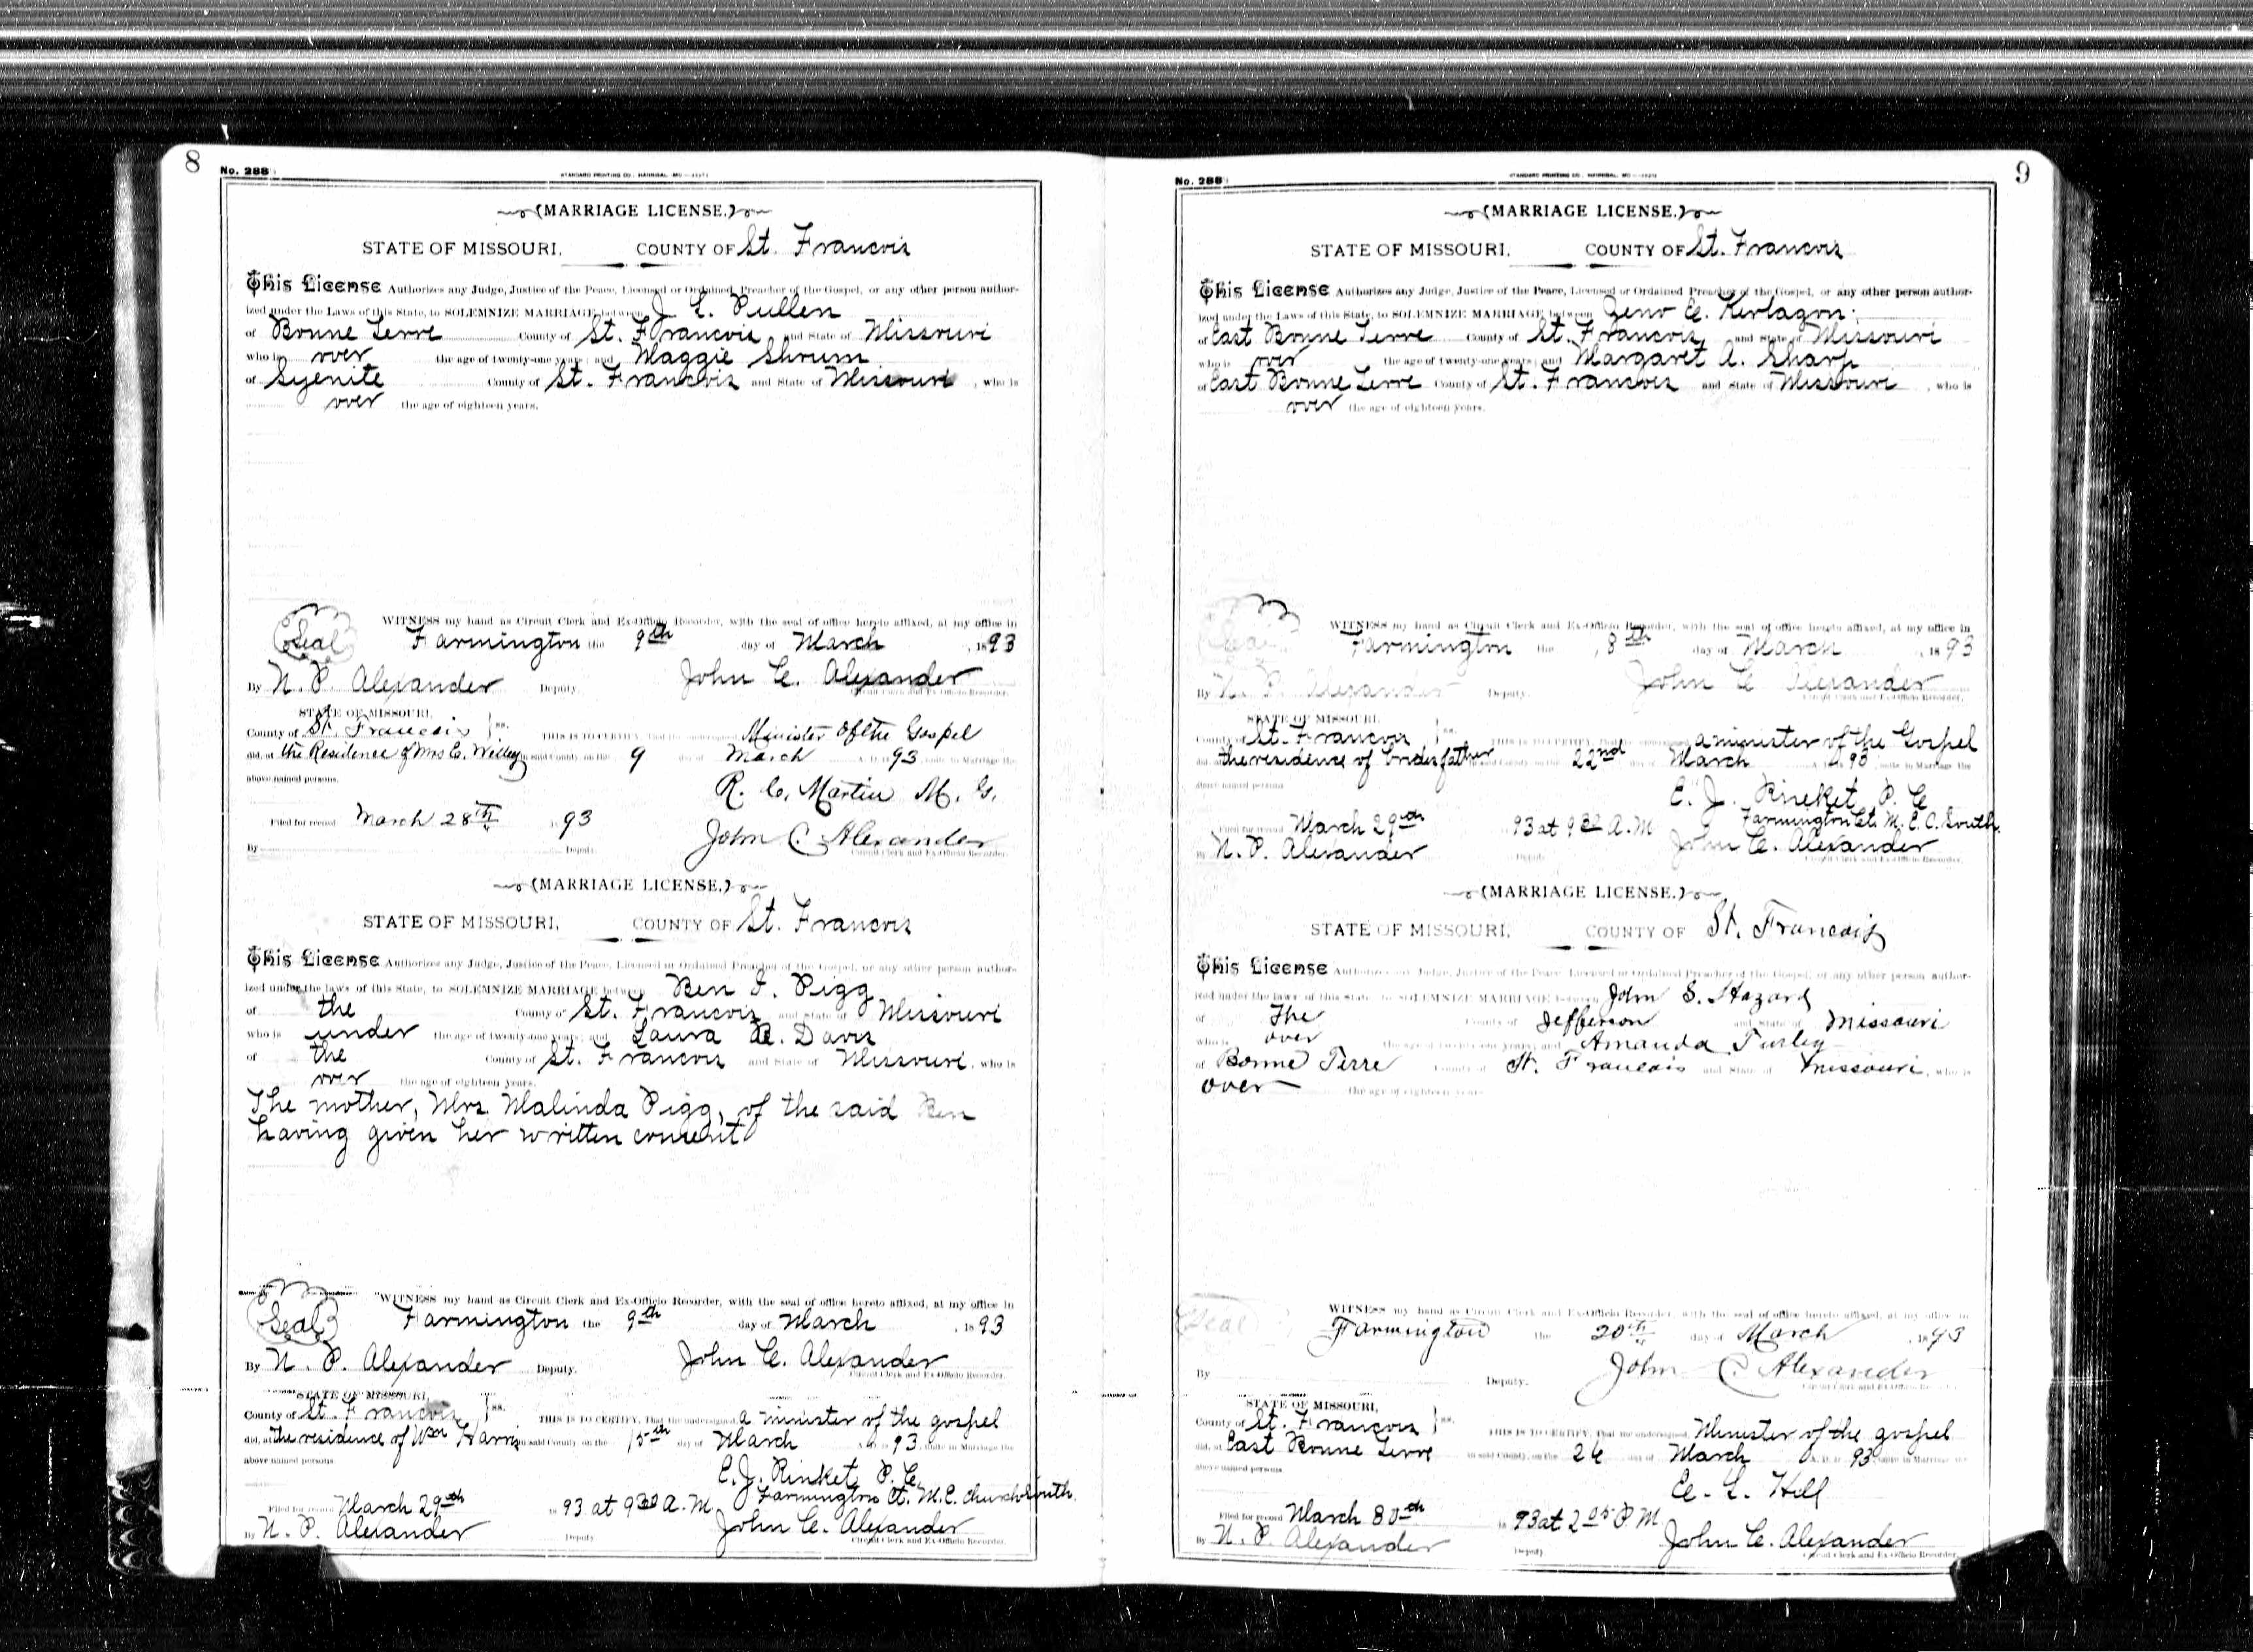 8
No. 288
(MARRIAGE LICENSE.)
STATE OF MISSOURI, COUNTY OF St. Francois
This License Authorizes any Judge, Justice of the Peace, Licensed or Ordained Preacher of the Gospel, or any other person author-
ized under the Laws of this State, to SOLEMNIZE MARRIAGE between J. L. Pullen
of Bonne Terre County of St. Francois and State of Missouri
who is over the age of twenty-one years; and Maggie Shrum
of Syenite County of St. Francois and State of Missouri, who is
over the age of eighteen years.
WITNESS my hand as Circuit Clerk and Ex-Officio Recorder, with the seal of office hereto affixed, at my office in
Seal Farmington the 9th day of March, 1893
By N. P. Alexander Deputy. John C. Alexander
Circuit Clerk and Ex-Officio Recorder.
STATE OF MISSOURI,
County of St. Francois ss. THIS IS TO CERTIFY, That the undersigned Minister of the Gospel
did, at the Residence of Mrs E. in said County on the 9 day of March A. D. 1893, unite in Marriage the
above named persons.
R. C. Martin M. G.
Filed for record March 28th 1893
By Deputy. John C. Alexander
Circuit Clerk and Ex-Officio Recorder.
(MARRIAGE LICENSE.)
STATE OF MISSOURI, COUNTY OF St. Francois
This License Authorizes any Judge, Justice of the Peace, Licensed or Ordained Preacher of the Gospel, or any other person author-
ized under the laws of this State, to SOLEMNIZE MARRIAGE between Ben F. Pigg
of the County of St. Francois and State of Missouri
who is under the age of twenty-one years; and Laura B. Davis
of the County of St. Francois and State of Missouri, who is
over the age of eighteen years.
The mother, Mrs. Malinda Pigg, of the said Ben
having given her written consent
WITNESS my hand as Circuit Clerk and Ex-Officio Recorder, with the seal of office hereto affixed, at my office in
Seal Farmington the 9th day of March, 1893
By N. P. Alexander Deputy. John C. Alexander
Circuit Clerk and Ex-Officio Recorder.
STATE OF MISSOURI,
County of St. Francois ss. THIS IS TO CERTIFY, That the undersigned a minister of the gospel
did, at the residence of Wm Harris in said County on the 15th day of March A. D. 1893, unite in Marriage the
above named persons
E. J. Rinket P. C.
Farmington Ct. M. E. Church South
Filed for record March 29th 1893 at 9 30 A. M.
By N. P. Alexander Deputy John C. Alexander
Circuit Clerk and Ex-Officio Recorder.
9
No. 288
(MARRIAGE LICENSE.)
STATE OF MISSOURI, COUNTY OF St. Francois
This License Authorizes any Judge, Justice of the Peace, Licensed or Ordained Preacher of the Gospel, or any other person author-
ized under the Laws of this State, to SOLEMNIZE MARRIAGE between Zeno E. Kerlagon
of East Bonne Terre County of St. Francois and State of Missouri
who is over the age of twenty-one years; and Margaret A. Sharp
of East Bonne Terre County of St. Francois and State of Missouri, who is
over the age of eighteen years.
WITNESS my hand as Circuit Clerk and Ex-Officio Recorder, with the seal of office hereto affixed, at my office in
Seal Farmington the 18th day of March, 1893
By N. P. Alexander Deputy. John C Alexander
Circuit Clerk and Ex-Officio Recorder.
STATE OF MISSOURI,
County of St. Francois ss. THIS IS TO CERTIFY, That the undersigned a minister of the Gospel
did, at the residence of brides father in said County on the 22nd day of March A. D. 1893, unite in Marriage the
above named persons
E. J. Rinket P. C.
Farmington Ct. M. E. C. South.
Filed for record March 29th 1893 at 9 A. M
By N. P. Alexander Deputy John C. Alexander
Circuit Clerk and Ex-Officio Recorder.
(MARRIAGE LICENSE.)
STATE OF MISSOURI, COUNTY OF St. Francois
This License Authorizes any Judge, Justice of the Peace, Licensed or Ordained Preacher of the Gospel, or any other person author-
ized under the laws of this State, to SOLEMNIZE MARRIAGE between John S. Hazard
of The County of Jefferson and State of Missouri
who is over the age of twenty-one years; and Amanda Turley
of Bonne Terre County of St. Francois and State of Missouri, who is
over the age of eighteen years
WITNESS my hand as Circuit Clerk and Ex-Officio Recorder, with the seal of office hereto affixed, at my office in
Seal Farmington the 20th day of March, 1893
By Deputy. John C. Alexander
Circuit Clerk and Ex-Officio Recorder
STATE OF MISSOURI,
County of St. Francois ss. THIS IS TO CERTIFY, That the undersigned Minister of the gospel
did, at East Bonne Terre in said County, on the 26 day of March A. D. 1893 unite in Marriage the
above named persons.
E. L. Hill
Filed for record March 30th 1893 at 2 05 P. M.
By N. P. Alexander Deputy John C. Alexander
Circuit Clerk and Ex-Officio Recorder